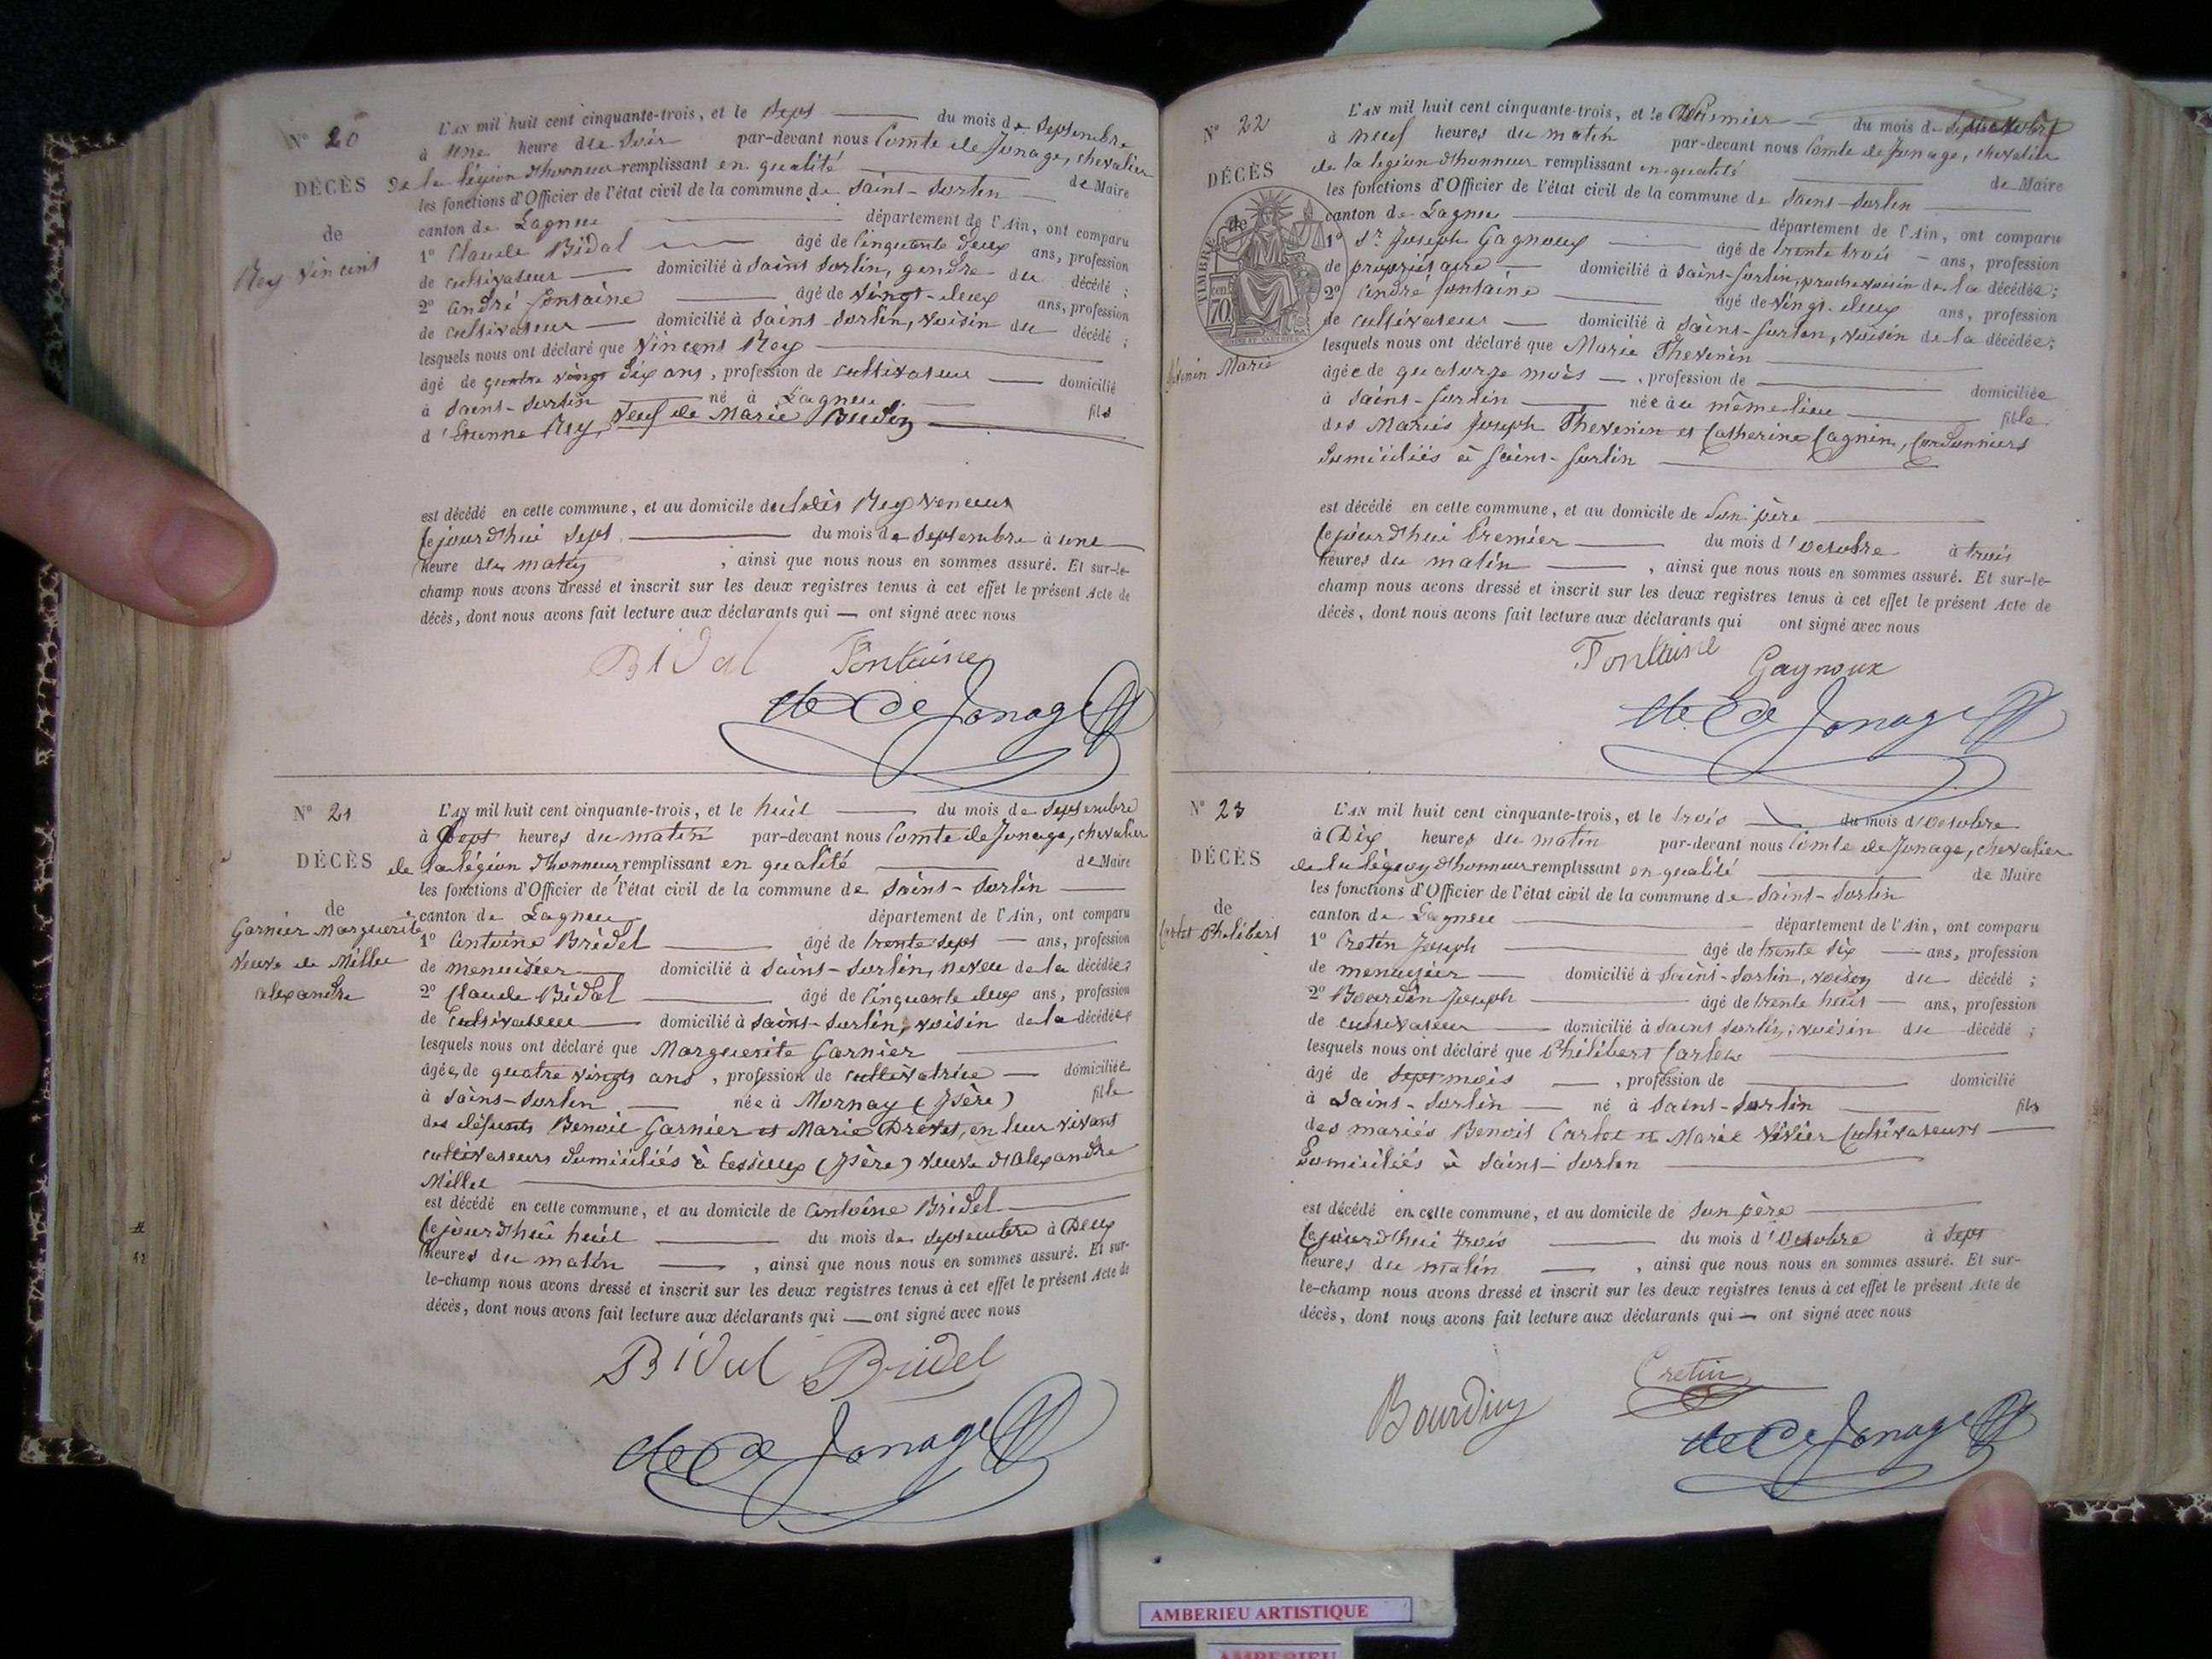 N° 20
DÉCÈS
de
Rey Vincent
L'AN mil huit cent cinquante-trois, et le Sept du mois de Septembre
à une heure du Soir par-devant nous Comte de Jonage, chevalier
de la légion d'honneur remplissant en qualité de Maire
les fonctions d'Officier de l'état civil de la commune de Saint-Sorlin
canton de Lagnieu département de l'Ain, ont comparu
1° Claude Bidal âgé de Cinquante deux ans, profession
de cultivateur domicilié à Saint Sorlin, gendre du décédé ;
2° André fontaine âgé de vingt-deux ans, profession
de cultivateur domicilié à Saint-Sorlin, voisin du décédé ;
lesquels nous ont déclaré que Vincent Rey
âgé de quatre vingt dix ans, profession de cultivateur domicilié
à Saint-Sorlin né à Lagnieu fils
d'Etienne Rey, veuf de Marie
est décédé en cette commune, et au domicile du
Cejourd'hui Sept du mois de Septembre à une
heure du matin, ainsi que nous nous en sommes assuré. Et sur-le-
champ nous avons dressé et inscrit sur les deux registres tenus à cet effet le présent Acte de
décès, dont nous avons fait lecture aux déclarants qui — ont signé avec nous
Bidal Fontaine
de Jonage
N° 21
DÉCÈS
de
Garnier Marguerite
Veuve de Millet
alexandre
L'AN mil huit cent cinquante-trois, et le huit du mois de Septembre
à Sept heures du matin par-devant nous Comte de Jonage, chevalier
de la légion d'honneur remplissant en qualité de Maire
les fonctions d'Officier de l'état civil de la commune de Saint-Sorlin
canton de Lagnieu département de l'Ain, ont comparu
1° Antoine Bridel âgé de trente sept ans, profession
de menuisier domicilié à Saint-Sorlin, neveu de la décédée ;
2° Claude Bidal âgé de Cinquante deux ans, profession
de cultivateur domicilié à Saint-Sorlin, voisin de la décédée
lesquels nous ont déclaré que Marguerite Garnier
âgée de quatre vingts ans, profession de cultivatrice domiciliée
à Saint-Sorlin née à Mornay (Isère) fille
des défunts Benoit Garnier et Marie Drevet, en leur vivant
cultivateurs domiciliés à (Isère) veuve d'Alexandre
Millet
est décédé en cette commune, et au domicile de Antoine Bridel
Cejourd'hui huit du mois de Septembre à Deux
heures du matin, ainsi que nous nous en sommes assuré. Et sur-
le-champ nous avons dressé et inscrit sur les deux registres tenus à cet effet le présent Acte de
décès, dont nous avons fait lecture aux déclarants qui — ont signé avec nous
Bidal Bridel
de Jonage
N° 22
DÉCÈS
de
TIMBRE
70
Marie
L'AN mil huit cent cinquante-trois, et le Premier du mois d'octobre
à neuf heures du matin par-devant nous Comte de Jonage, chevalier
de la légion d'honneur remplissant en qualité de Maire
les fonctions d'Officier de l'état civil de la commune de Saint-Sorlin
canton de Lagnieu département de l'Ain, ont comparu
1° Sr Joseph Gagnoux âgé de trente trois ans, profession
de propriétaire domicilié à Saint-Sorlin, proche voisin de la décédée ;
2° André fontaine âgé de vingt-deux ans, profession
de cultivateur domicilié à Saint-Sorlin, voisin de la décédée ;
lesquels nous ont déclaré que Marie Thevenin
âgée de quatorze mois, profession de domiciliée
à Saint-Sorlin née au même lieu fille
des Mariés Joseph Thevenin et Catherine Cagnin, Cordonniers
domiciliés à Saint-Sorlin
est décédé en cette commune, et au domicile de Son père
Cejourd'hui Premier du mois d'Octobre à trois
heures du matin, ainsi que nous nous en sommes assuré. Et sur-le-
champ nous avons dressé et inscrit sur les deux registres tenus à cet effet le présent Acte de
décès, dont nous avons fait lecture aux déclarants qui ont signé avec nous
Fontaine Gagnoux
de Jonage
N° 23
DÉCÈS
de
Philibert
L'AN mil huit cent cinquante-trois, et le trois du mois d'Octobre
à Dix heures du matin par-devant nous Comte de Jonage, chevalier
de la légion d'honneur remplissant en qualité de Maire
les fonctions d'Officier de l'état civil de la commune de Saint-Sorlin
canton de Lagnieu département de l'Ain, ont comparu
1° Cretin Joseph âgé de trente six ans, profession
de menuisier domicilié à Saint-Sorlin, voisin du décédé ;
2° Bourdin Joseph âgé de trente huit ans, profession
de cultivateur domicilié à Saint Sorlin, voisin du décédé ;
lesquels nous ont déclaré que Philibert Carlet
âgé de Sept mois, profession de domicilié
à Saint-Sorlin né à Saint-Sorlin fils
des mariés Benoit Carlet et Marie Vivier Cultivateurs
Domiciliés à Saint-Sorlin
est décédé en cette commune, et au domicile de Son père
Cejourd'hui trois du mois d'Octobre à Sept
heures du matin, ainsi que nous nous en sommes assuré. Et sur-
le-champ nous avons dressé et inscrit sur les deux registres tenus à cet effet le présent Acte de
décès, dont nous avons fait lecture aux déclarants qui — ont signé avec nous
Cretin
Bourdin
de Jonage
AMBERIEU ARTISTIQUE
AMBERIEU